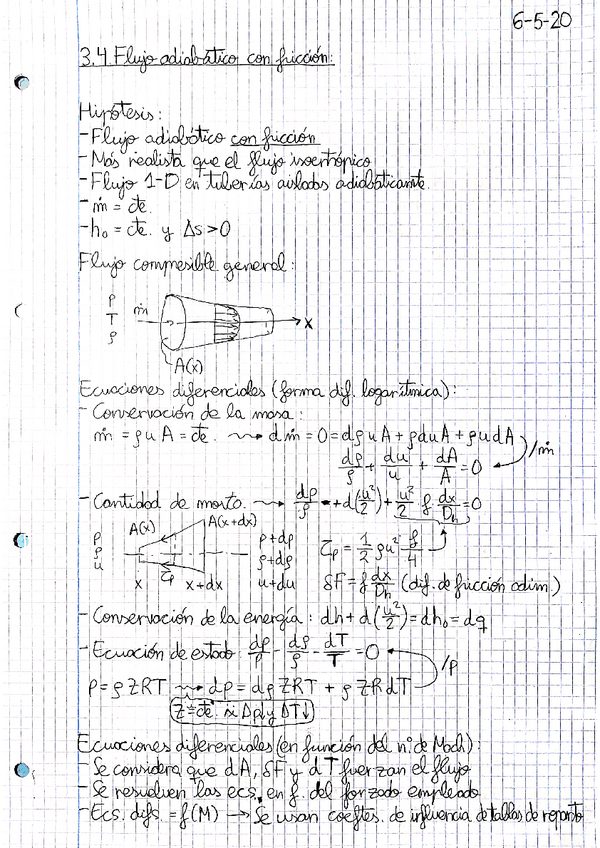 6-5-20
3.4. Flujo adiabático con fricción:
Hipótesis:
- Flujo adiabático con fricción
- Más realista que el flujo isoentrópico
- Flujo 1-D en tuberías aisladas adiabáticamte.
- ṁ = cte.
- h₀ = cte. y Δs > 0
Flujo compresible general:
p
T
ρ
ṁ
x
A(x)
Ecuaciones diferenciales (forma dif. logarítmica):
- Conservación de la masa:
ṁ = ρuA = cte. ⇝ dṁ = 0 = dρuA + ρduA + ρudA /ṁ
dρ/ρ + du/u + dA/A = 0
- Cantidad de movto. ⇝ dp/ρ + d(u²/2) + u²/2 f dx/Dh = 0
A(x) A(x+dx)
p ρ u
p+dp ρ+dρ u+du
x τp x+dx
τp = 1/2 ρu² f/4
δF = f dx/Dh (dif. de fricción adim.)
- Conservación de la energía: dh + d(u²/2) = dh₀ = dq
- Ecuación de estado: dp/p - dρ/ρ - dT/T = 0
p = ρZRT ⇝ dp = dρZRT + ρZRdT /p
Z ≐ cte. si Δp↓ y ΔT↓
Ecuaciones diferenciales (en función del nº de Mach):
- Se considera que dA, δF y dT fuerzan el flujo
- Se resuelven las ecs. en f. del forzado empleado
- Ecs. difs. = f(M) → Se usan coeftes. de influencia de tablas de reparto